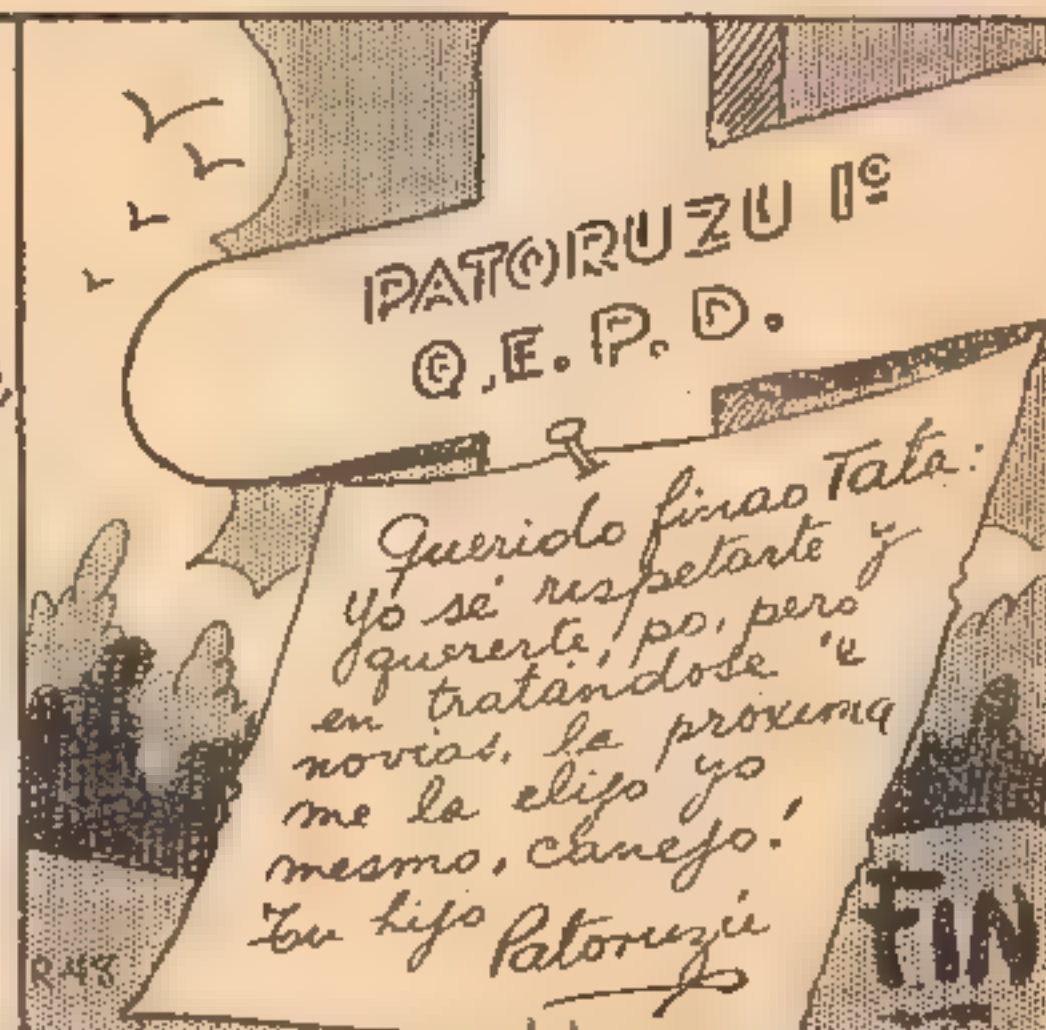 PATORUZU 1º
Q.E.P.D.
Querido finao Tata:
yo sé respetarte y
quererte, po, pero
en tratándose 'e
novias, la próxima
me la elijo yo
mesmo, canejo!
Tu hijo Patoruzú
R48
FIN